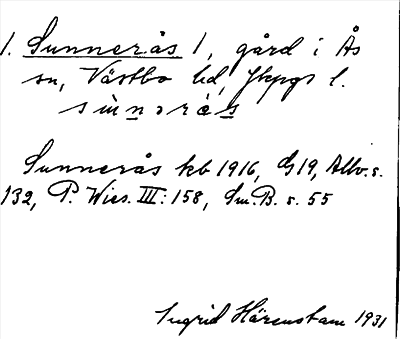 1. Sunnerås 1, gård i Ås
sn, Västbo hd, Jkpgs l.
sùnərás
Sunnerås kb 1916, G19, Allv. s.
132, P. Wies. III: 158, Sm.B. s. 55
Ingrid Härenstam 1931